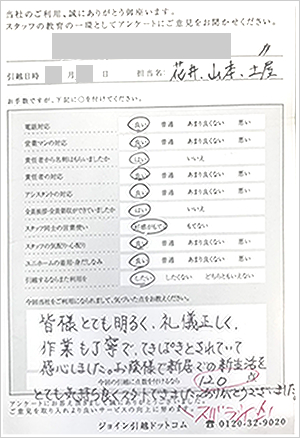 当社のご利用、誠にありがとう御座います。
スタッフの教育の一環としてアンケートにご意見をお聞かせください。
引越日時 月 日 担当名: 花井、山本、土屋
お手数ですが、下記に○を付けてください。
電話対応 良い 普通 あまり良くない 悪い
営業マンの対応 良い 普通 あまり良くない 悪い
責任者から名刺はもらいましたか はい いいえ
責任者の対応 良い 普通 あまり良くない 悪い
アシスタントの対応 良い 普通 あまり良くない 悪い
全員挨拶・全員節度ができていましたか はい いいえ
スタッフ同士の言葉使い 好感がもてる もてない
スタッフの気配り・心配り 良い 普通 あまり良くない 悪い
ユニホームの着用・身だしなみ 良い 普通 あまり良くない 悪い
引越するならまた利用を したい したくない どちらともいえない
今回当社をご利用になられまして、気づいた点をお教えください。
皆様とても明るく、礼儀正しく、
作業も丁寧で、てきぱきとされていて
感心しました。お陰様で新居での新生活を
今回の引越しに点数を付けるなら 120 点
とても気持ち良くスタートできました。ありがとうございました。
アンケートにお答え頂きまして誠にありがとうございました。
ご意見を取り入れより良いサービスの向上に努めます。
スバラシイ!
ジョイン引越ドットコム 0120-32-9020